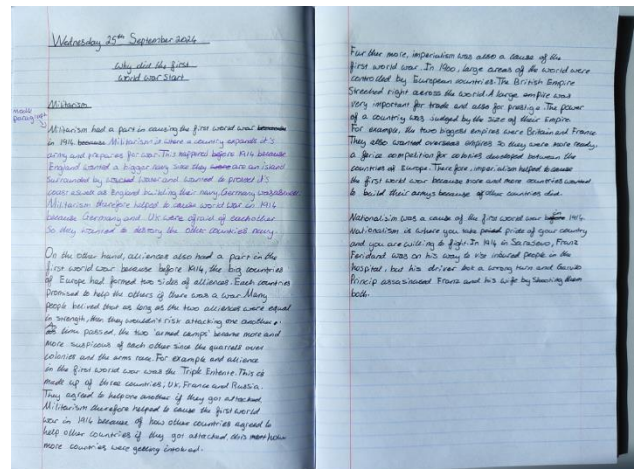 Wednesday 25th September 2024
Why did the first
world war start
Militarism
model
paragraph
Militarism had a part in causing the first world war
in 1914. Militarism is where a country expands it's
army and prepares for war. This happened before 1914 because
England wanted a bigger navy since they are an island
surrounded by water and wanted to protect it's
coast aswell as England building their navy, Germany was
Militarism therefore helped to cause world war in 1914
because Germany and UK were afraid of each other
So they wanted to destroy the other countries navy.
On the other hand, alliances also had a part in the
first world war because before 1914, the big countries
of Europe had formed two sides of alliances. Each countries
promised to help the others if there was a war. Many
people belived that as long as the two alliances were equal
in strength, then they wouldn't risk attacking one another.
As time passed, the two 'armed camps' became more and
more suspicious of each other since the quarrels over
colonies and the arms race. For example and alliance
in the first world war was the Triple Entente. This is
made up of three countries; UK, France and Russia.
They agreed to help one another if they got attacked.
Militarism therefore helped to cause the first world
war in 1914 because of how other countries agreed to
help other countries if they got attacked, this
more countries were getting involved.
Further more, imperialism was also a cause of the
first world war. In 1900, large areas of the world were
controlled by European countries. The British Empire
Streched right across the world. A large empire was
very important for trade and also for prestige. The power
of a country was judged by the size of their Empire.
For example, the two biggest empires were Britain and France.
They also wanted overseas empires so they were more ready.
a fierce competition for colonies developed between the
countries of Europe. Therefore, imperialism helped to cause
the first world war because more and more countries wanted
to build their armys because of other countries did.
Nationalisim was a cause of the first world war 1914.
Nationalism is where you take pride of your country
and you are willing to fight. In 1914 in Sarajevo, Franz
Ferdinand was on his way to vise injured people in the
hospital, but his driver took a wrong turn and
Princip assasinated Franz and his wife by shooting them
both.